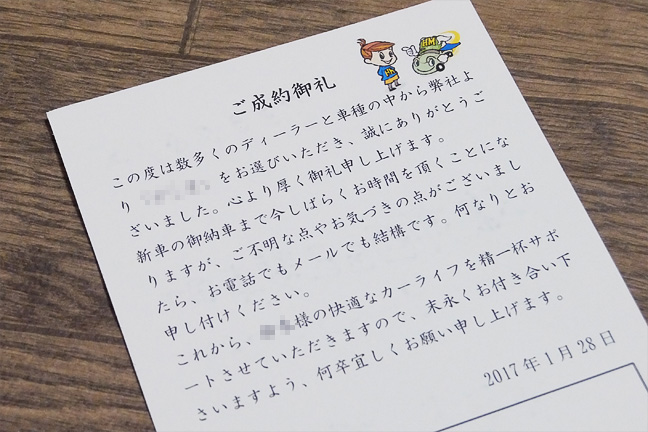 HM
ご成約御礼
この度は数多くのディーラーと車種の中から弊社よ
り をお選びいただき、誠にありがとうご
ざいました。心より厚く御礼申し上げます。
新車の御納車まで今しばらくお時間を頂くことにな
りますが、ご不明な点やお気づきの点がございまし
たら、お電話でもメールでも結構です。何なりとお
申し付けください。
これから、 様の快適なカーライフを精一杯サポ
ートさせていただきますので、末永くお付き合い下
さいますよう、何卒宜しくお願い申し上げます。
2017年1月28日